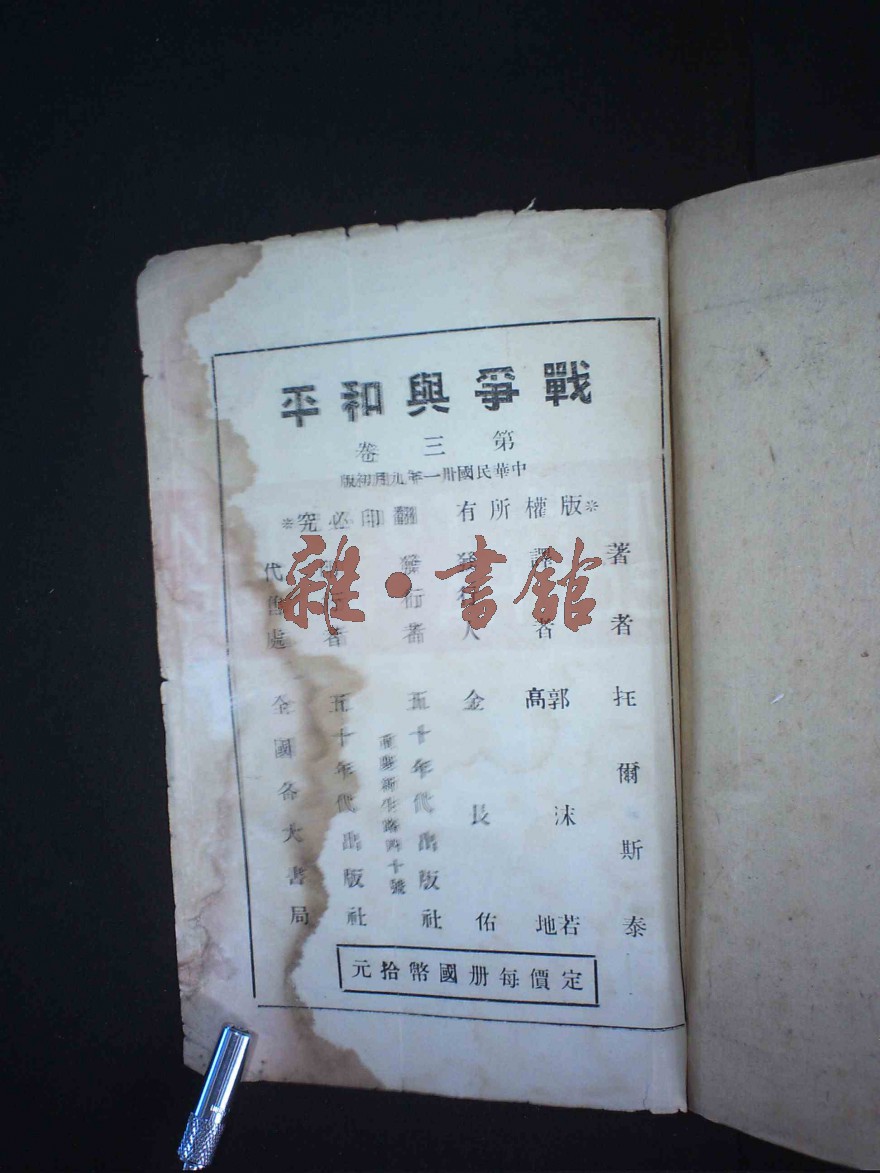 戰爭與和平
第三卷
中華民國卅一年九月初版
※版權所有 翻印必究※
著者 托爾斯泰
譯者 郭沫若 高地
發行人 金長佑
發行者 五十年代出版社
重慶新生路四十號
者 五十年代出版社
代售處 全國各大書局
定價每册國幣拾元
雜·書館